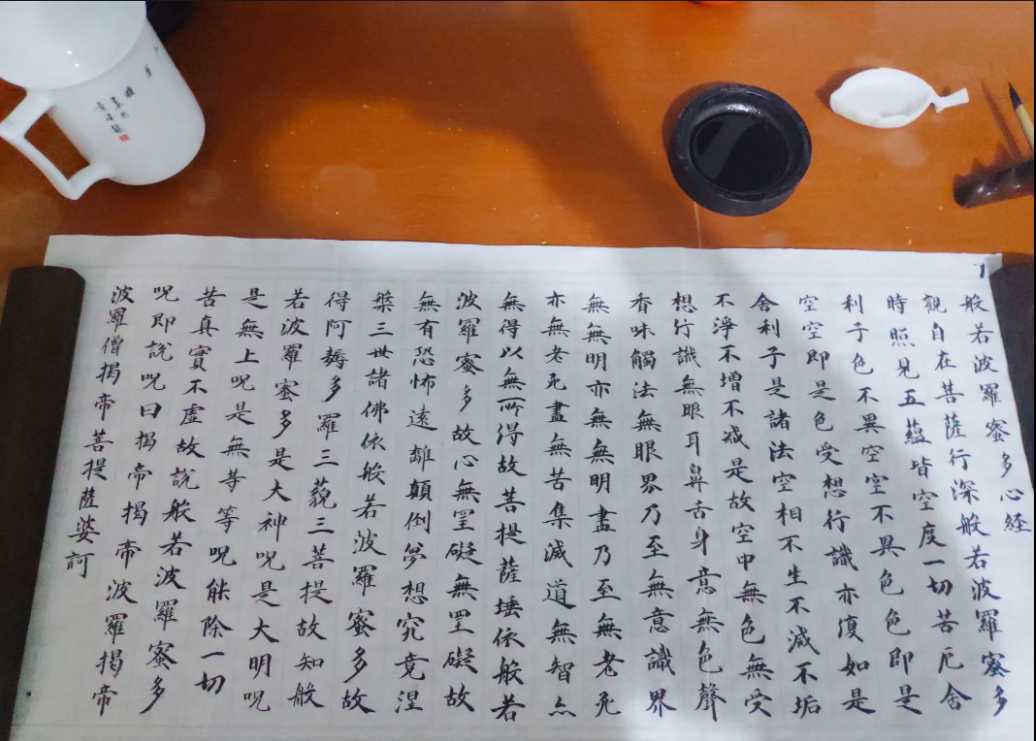 般若波羅蜜多心経
觀自在菩薩行深般若波羅蜜多
時照見五蘊皆空度一切苦厄舍
利子色不異空空不異色色即是
空空即是色受想行識亦復如是
舍利子是諸法空相不生不滅不垢
不淨不增不減是故空中無色無受
想行識無眼耳鼻舌身意無色聲
香味觸法無眼界乃至無意識界
無無明亦無無明盡乃至無老死
亦無老死盡無苦集滅道無智亦
無得以無所得故菩提薩埵依般若
波羅蜜多故心無罣礙無罣礙故
無有恐怖遠離顛倒夢想究竟涅
槃三世諸佛依般若波羅蜜多故
得阿耨多羅三藐三菩提故知般
若波羅蜜多是大神呪是大明呪
是無上呪是無等等呪能除一切
苦真實不虛故說般若波羅蜜多
呪即說呪曰揭帝揭帝波羅揭帝
波羅僧揭帝菩提薩婆訶